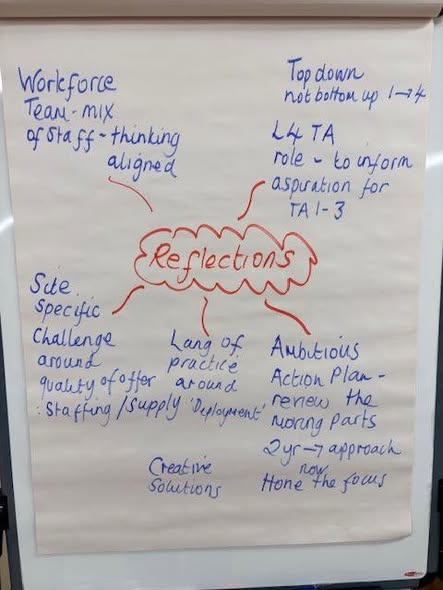 Workforce
Team - mix
of staff - thinking
aligned
Top down
not bottom up 1→4
L4 TA
role - to inform
aspiration for
TA 1-3
Reflections
Site
specific
Challenge
around
quality of offer
: Staffing / Supply
Lang of
practice
around
'Deployment'
Creative
Solutions
Ambitious
Action Plan -
review the
moving parts
2yr → approach
now
Hone the focus